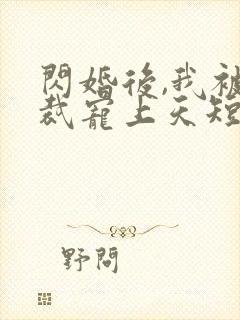 閃婚後,我被
裁寵上天短
野問